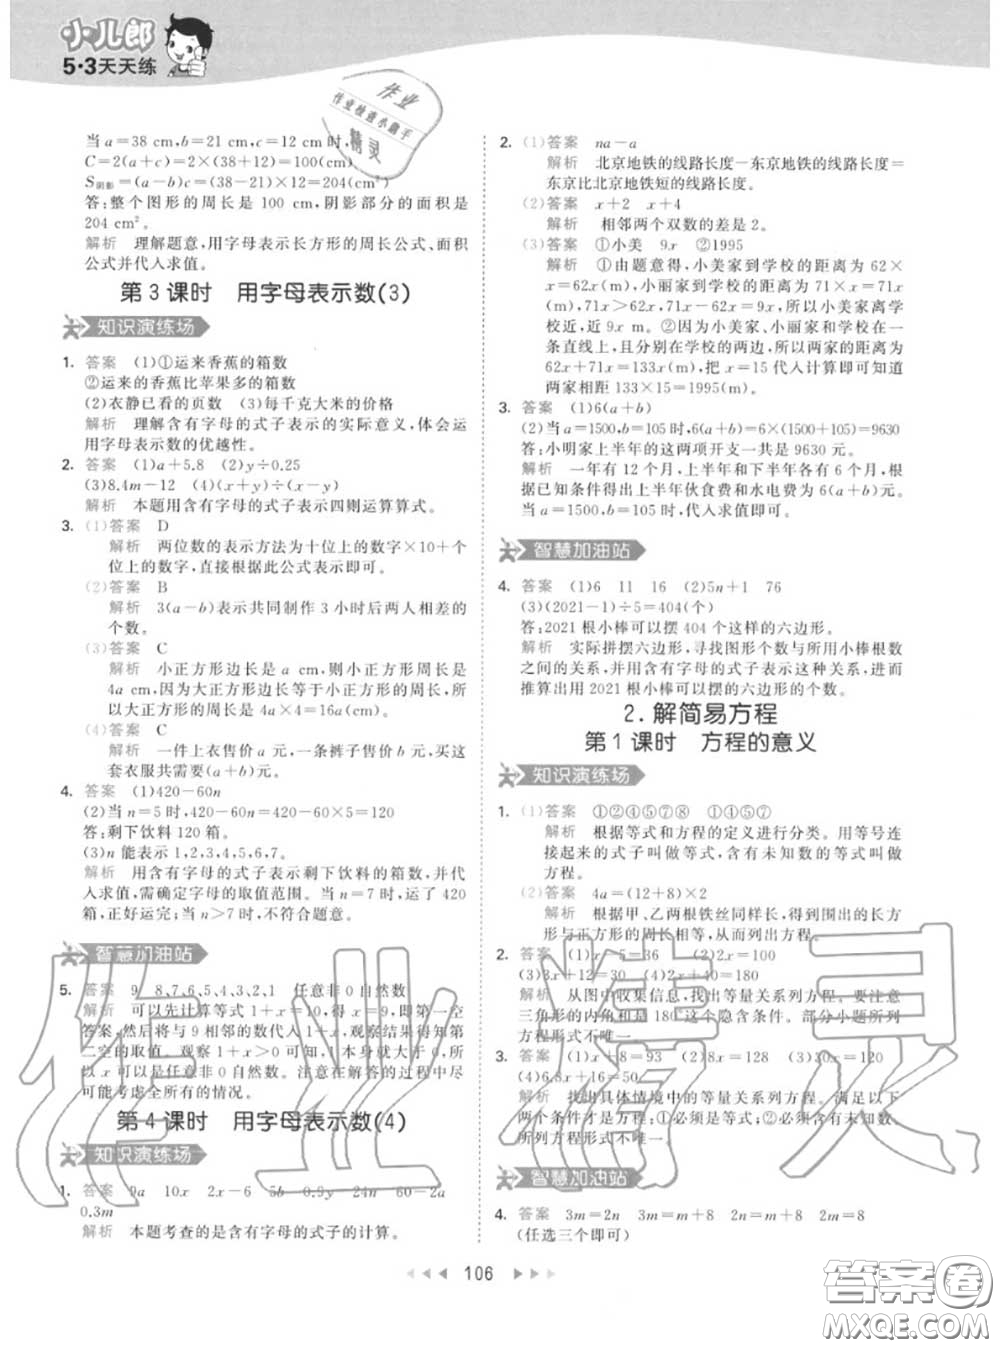 小儿郎
5·3天天练
作业
作业检查小助手
精灵
当a=38 cm,b=21 cm,c=12 cm时,
C=2(a+c)=2×(38+12)=100(cm)
S阴影=(a-b)c=(38-21)×12=204(cm²)
答:整个图形的周长是100 cm,阴影部分的面积是
204 cm²。
解析 理解题意,用字母表示长方形的周长公式、面积
公式并代入求值。
第3课时 用字母表示数(3)
知识演练场
1. 答案 (1)①运来香蕉的箱数
②运来的香蕉比苹果多的箱数
(2)衣静已看的页数 (3)每千克大米的价格
解析 理解含有字母的式子表示的实际意义,体会运
用字母表示数的优越性。
2. 答案 (1)a+5.8 (2)y÷0.25
(3)8.4m-12 (4)(x+y)÷(x-y)
解析 本题用含有字母的式子表示四则运算算式。
3. (1)答案 D
解析 两位数的表示方法为十位上的数字×10+个
位上的数字,直接根据此公式表示即可。
(2)答案 B
解析 3(a-b)表示共同制作3小时后两人相差的
个数。
(3)答案 C
解析 小正方形边长是a cm,则小正方形周长是
4a cm,因为大正方形边长等于小正方形的周长,所
以大正方形的周长是4a×4=16a(cm)。
(4)答案 C
解析 一件上衣售价a元,一条裤子售价b元,买这
套衣服共需要(a+b)元。
4. 答案 (1)420-60n
(2)当n=5时,420-60n=420-60×5=120
答:剩下饮料120箱。
(3)n能表示1,2,3,4,5,6,7。
解析 用含有字母的式子表示剩下饮料的箱数,并代
入求值,需确定字母的取值范围。当n=7时,运了420
箱,正好运完;当n>7时,不符合题意。
智慧加油站
5. 答案 9 8,7,6,5,4,3,2,1 任意非0自然数
解析 可以先计算等式1+x=10,得x=9,即第一空
答案,然后将与9相邻的数代入1+x,观察结果得知第
二空的取值。观察1+x>0可知,1本身就大于0,所
以x可以是任意非0自然数。注意在解答的过程中尽
可能考虑全所有的情况。
第4课时 用字母表示数(4)
知识演练场
1. 答案 9a 10x 2x-6 5b 0.9y 24n 60-2a
0.3m
解析 本题考查的是含有字母的式子的计算。
2. (1)答案 na-a
解析 北京地铁的线路长度-东京地铁的线路长度=
东京比北京地铁短的线路长度。
(2)答案 x+2 x+4
解析 相邻两个双数的差是2。
(3)答案 ①小美 9x ②1995
解析 ①由题意得,小美家到学校的距离为62×
x=62x(m),小丽家到学校的距离为71×x=71x
(m),71x>62x,71x-62x=9x,所以小美家离学
校近,近9x m。②因为小美家、小丽家和学校在一
条直线上,且分居在学校的两边,所以两家的距离为
62x+71x=133x(m),把x=15代入计算即可知道
两家相距133×15=1995(m)。
3. 答案 (1)6(a+b)
(2)当a=1500,b=105时,6(a+b)=6×(1500+105)=9630
答:小明家上半年的这两项开支一共是9630元。
解析 一年有12个月,上半年和下半年各有6个月,根
据已知条件得出上半年伙食费和水电费为6(a+b)元。
当a=1500,b=105时,代入求值即可。
智慧加油站
4. 答案 (1)6 11 16 (2)5n+1 76
(3)(2021-1)÷5=404(个)
答:2021根小棒可以摆404个这样的六边形。
解析 实际拼摆六边形,寻找图形个数与所用小棒根数
之间的关系,并用含有字母的式子表示这种关系,进而
推算出用2021根小棒可以摆的六边形的个数。
2.解简易方程
第1课时 方程的意义
知识演练场
1. (1)答案 ①②④⑤⑦⑧ ①④⑤⑦
解析 根据等式和方程的定义进行分类。用等号连
接起来的式子叫做等式,含有未知数的等式叫做
方程。
(2)答案 4a=(12+8)×2
解析 根据甲、乙两根铁丝同样长,得到围出的长方
形与正方形的周长相等,从而列出方程。
2. 答案 (1)x÷5=36 (2)2x=100
(3)3x+12=30 (4)2x=90
解析 从图中收集信息,找出等量关系列方程。要注意
三角形的内角和是180°这个隐含条件。部分小题所列
方程形式不唯一。
3. 答案 (1)x+8=93 (2)8x=128 (3)30x=120
(4)6.8x+16=50
解析 找出具体情境中的等量关系列方程。满足以下
两个条件才是方程:①必须是等式;②必须含有未知数。
所列方程形式不唯一。
智慧加油站
4. 答案 3m=2n 3m=m+8 2n=m+8 2m=8
(任选三个即可)
106
作业精灵
答案卷
MXQE.COM